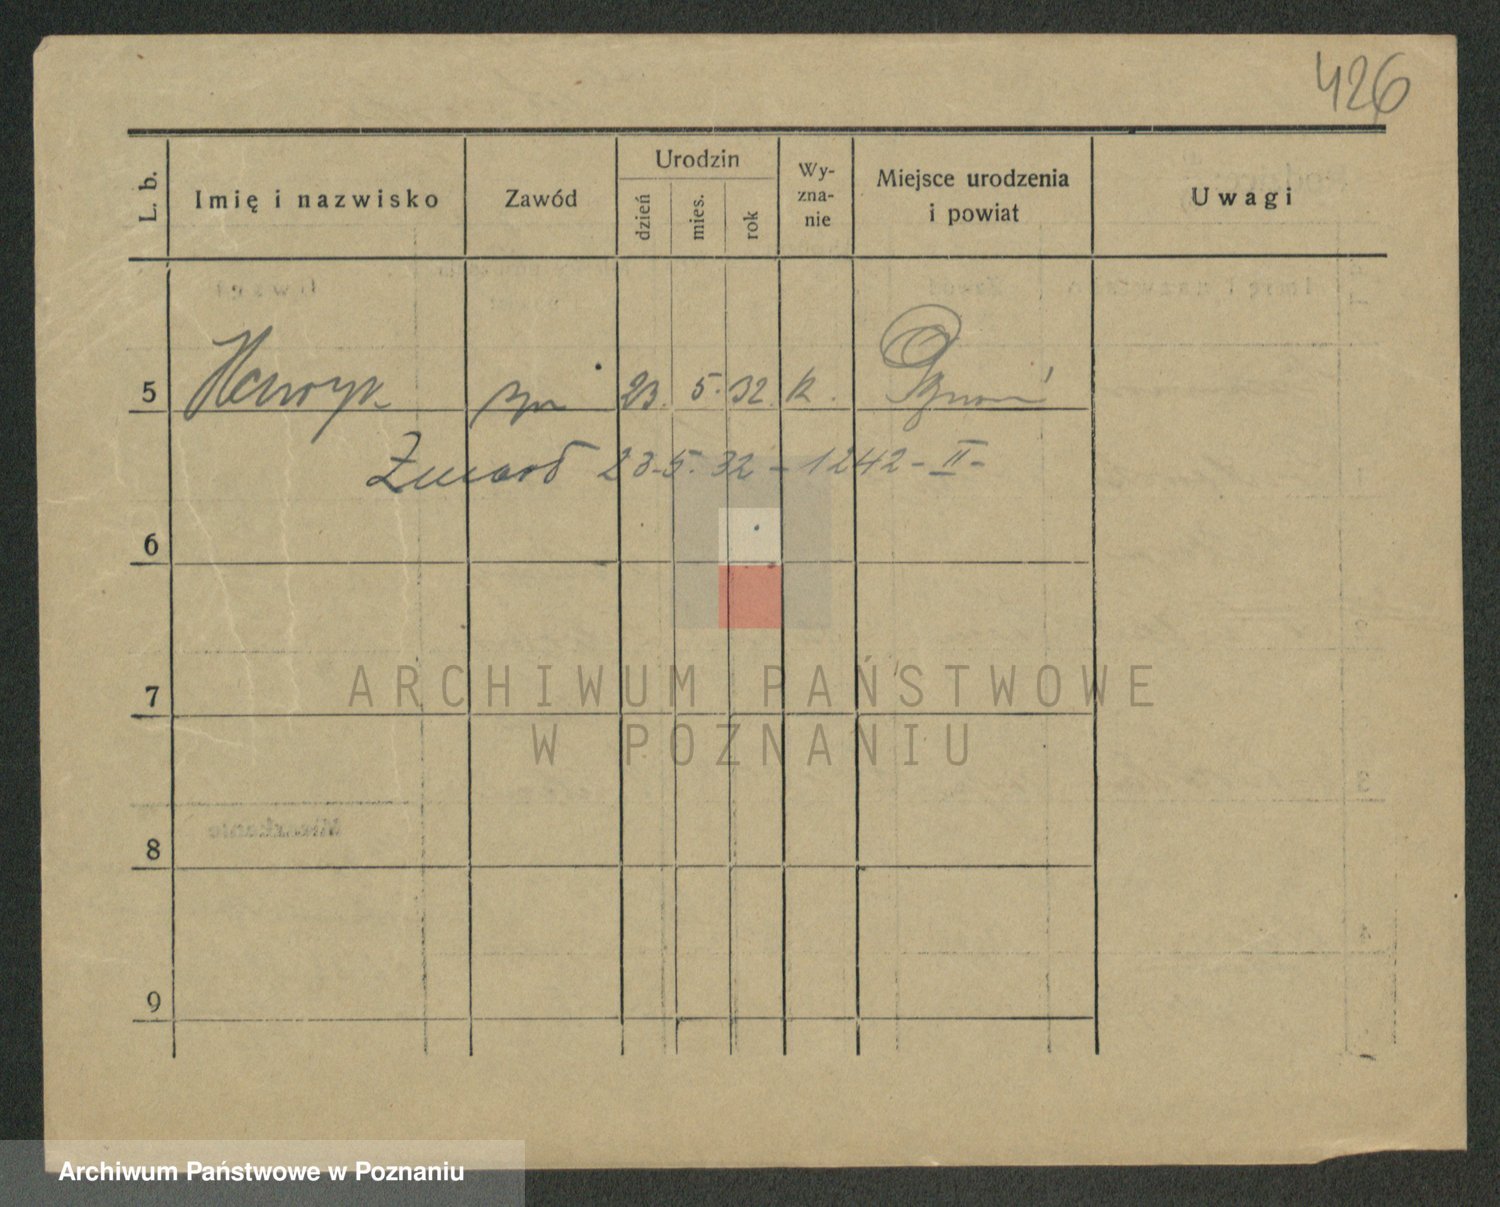 426
L. b. Imię i nazwisko Zawód Urodzin dzień mies. rok Wy- zna- nie Miejsce urodzenia i powiat Uwagi
5 Henryk syn 23. 5. 32. k. Poznań
Zmarł 23.5.32 - 1242 - II -
6
7
ARCHIWUM PAŃSTWOWE
W POZNANIU
8
9
Archiwum Państwowe w Poznaniu